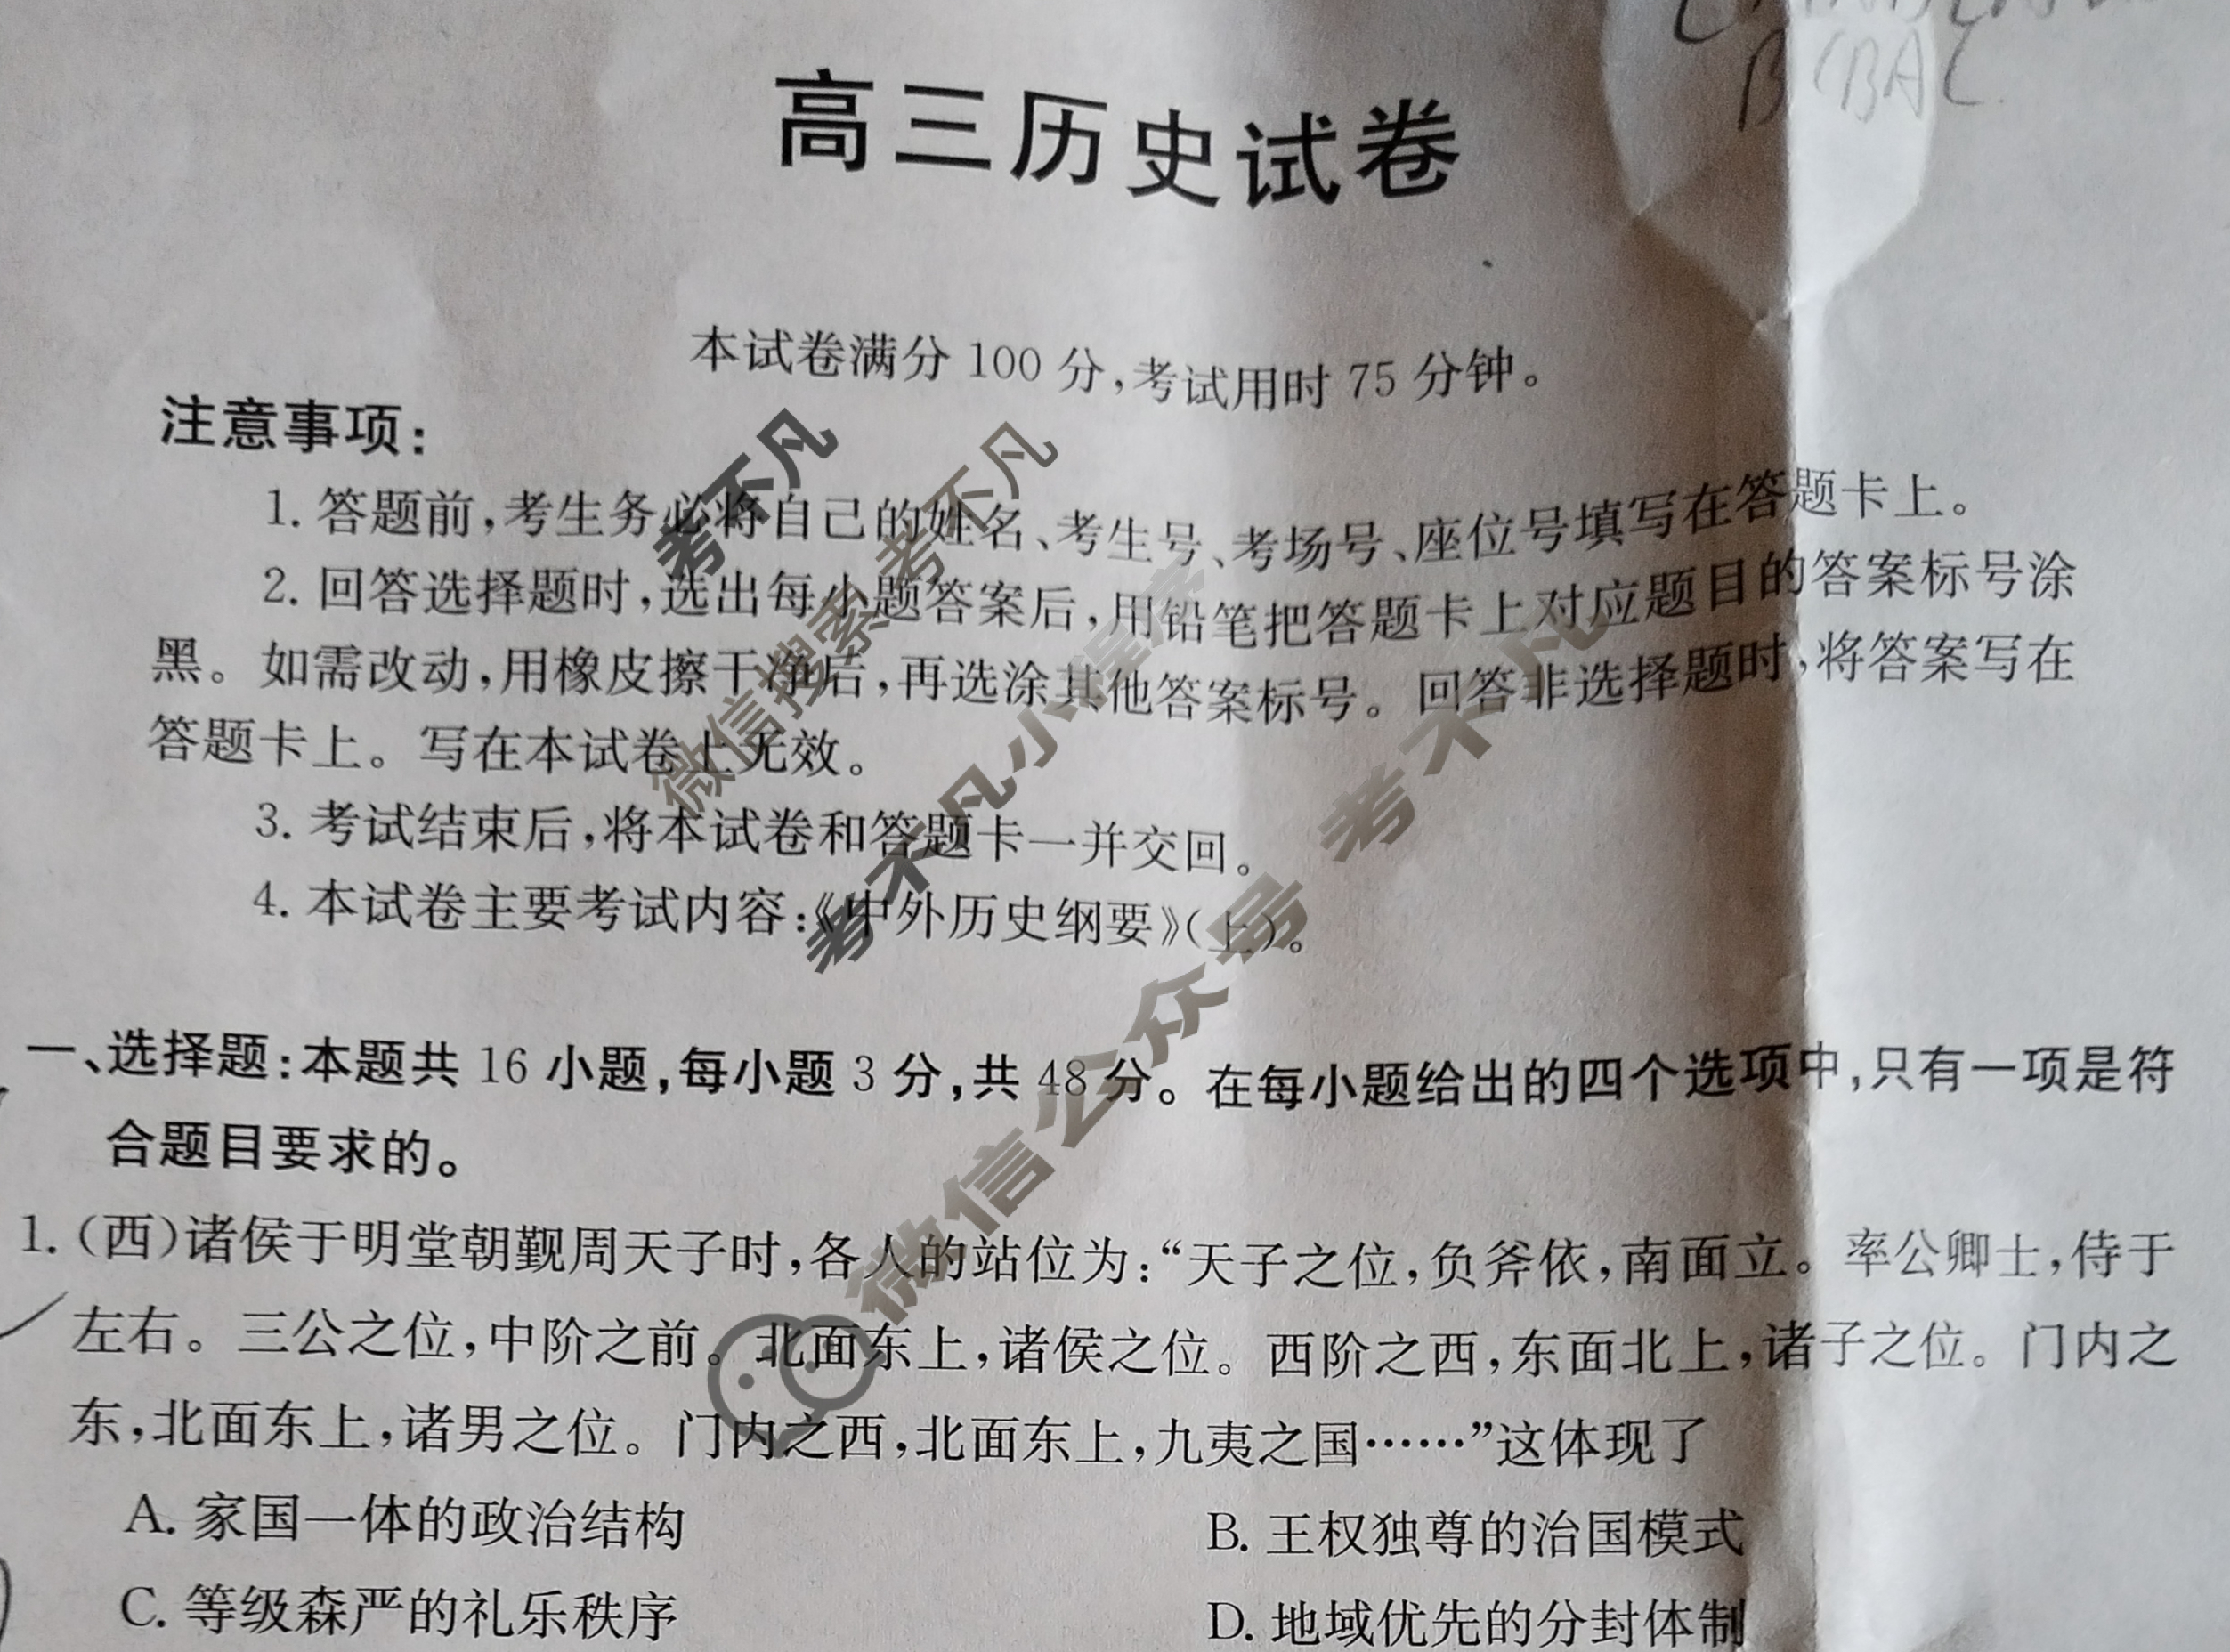 BCBAC
高三历史试卷
本试卷满分 100 分,考试用时 75 分钟。
注意事项:
1. 答题前,考生务必将自己的姓名、考生号、考场号、座位号填写在答题卡上。
2. 回答选择题时,选出每小题答案后,用铅笔把答题卡上对应题目的答案标号涂
黑。如需改动,用橡皮擦干净后,再选涂其他答案标号。回答非选择题时,将答案写在
答题卡上。写在本试卷上无效。
3. 考试结束后,将本试卷和答题卡一并交回。
4. 本试卷主要考试内容:《中外历史纲要》(上)。
一、选择题:本题共 16 小题,每小题 3 分,共 48 分。在每小题给出的四个选项中,只有一项是符
合题目要求的。
1. (西)诸侯于明堂朝觐周天子时,各人的站位为:“天子之位,负斧依,南面立。率公卿士,侍于
左右。三公之位,中阶之前。北面东上,诸侯之位。西阶之西,东面北上,诸子之位。门内之
东,北面东上,诸男之位。门内之西,北面东上,九夷之国……”这体现了
A. 家国一体的政治结构
B. 王权独尊的治国模式
C. 等级森严的礼乐秩序
D. 地域优先的分封体制
考不凡
微信搜索 考不凡
考不凡小程序
微信公众号 考不凡